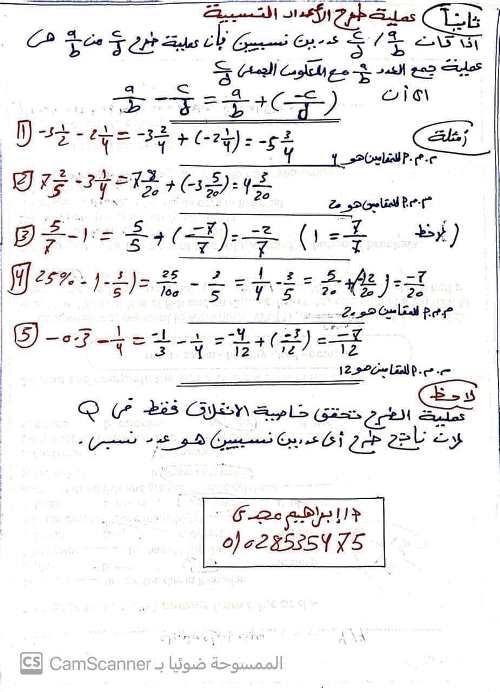 ثانياً عملية طرح الأعداد النسبية
اذا كان a/b , c/d عددين نسبيين فإن عملية طرح c/d من a/b هى
عملية جمع العدد a/b مع المعكوس الجمعى c/d
اى أن a/b - c/d = a/b + (-c/d)
أمثلة
1 -3 1/2 - 2 1/4 = -3 2/4 + (-2 1/4) = -5 3/4
م.م.م للمقامين هو 4
2 7 2/5 - 3 1/4 = 7 8/20 + (-3 5/20) = 4 3/20
م.م.م للمقامين هو 20
3 5/7 - 1 = 5/5 + (-7/7) = -2/7 (1 = 7/7 لاحظ)
4 25% - (-3/5) = 25/100 - 3/5 = 1/4 - 3/5 = 5/20 + (-12/20) = -7/20
م.م.م للمقامين هو 20
5 -0.3 - 1/4 = -1/3 - 1/4 = -4/12 + (-3/12) = -7/12
م.م.م للمقامين هو 12
لاحظ
عملية الطرح تحقق خاصية الانغلاق فقط فى Q
لان ناتج طرح أى عددين نسبيين هو عدد نسبى.
ا/إبراهيم مجدى
01028535475
CS CamScanner الممسوحة ضوئيا بـ